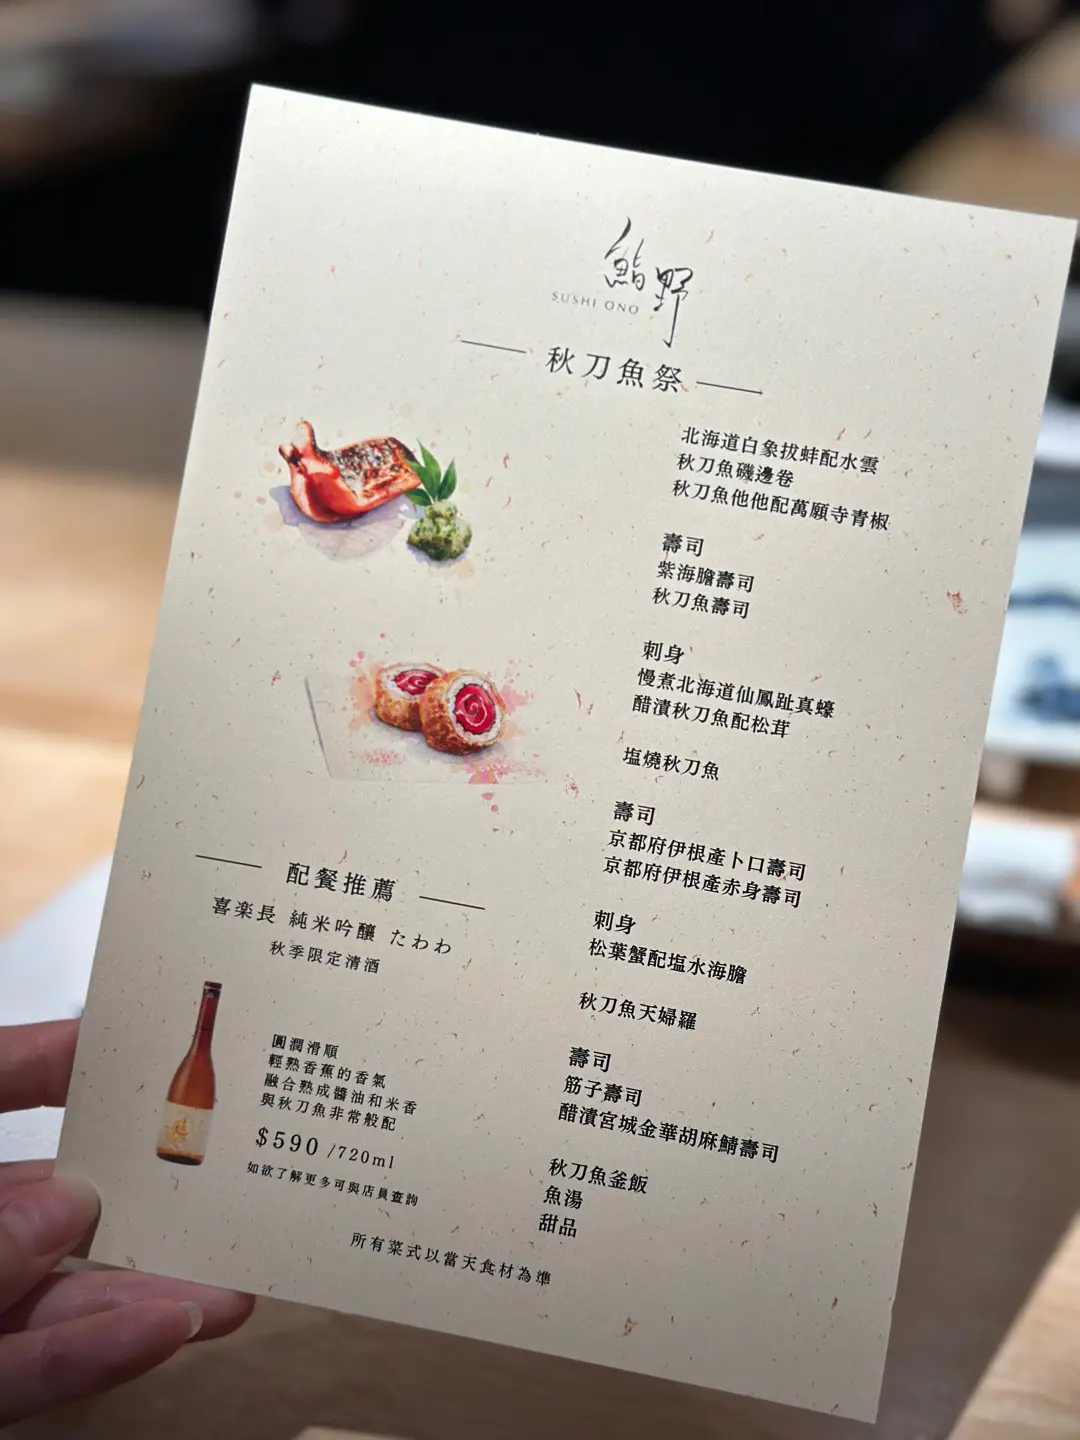 鮨野
SUSHI ONO
秋刀魚祭
北海道白象拔蚌配水雲
秋刀魚磯邊卷
秋刀魚他他配萬願寺青椒
壽司
紫海膽壽司
秋刀魚壽司
刺身
慢煮北海道仙鳳趾真蠔
醋漬秋刀魚配松茸
塩燒秋刀魚
壽司
京都府伊根產卜口壽司
京都府伊根產赤身壽司
刺身
松葉蟹配塩水海膽
秋刀魚天婦羅
壽司
筋子壽司
醋漬宮城金華胡麻鯖壽司
秋刀魚釜飯
魚湯
甜品
配餐推薦
喜楽長 純米吟釀 たわわ
秋季限定清酒
圓潤滑順
輕熟香蕉的香氣
融合熟成醬油和米香
與秋刀魚非常般配
$590 /720ml
如欲了解更多可與店員查詢
所有菜式以當天食材為準